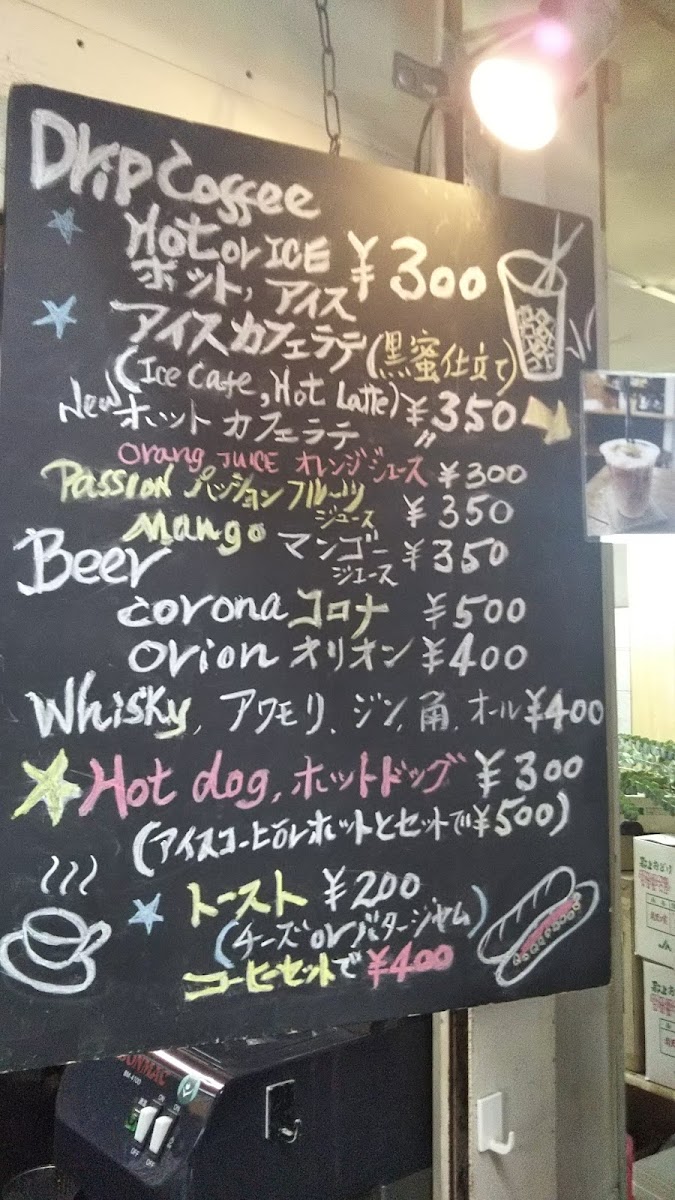 Drip Coffee
Hot or ICE ¥300
ホット, アイス
アイスカフェラテ (黒蜜仕立て)
(Ice Cafe, Hot Latte) ¥350
New ホット カフェラテ 〃
Orang JUICE オレンジジュース ¥300
Passion パッションフルーツ
ジュース ¥350
Mango マンゴー ¥350
ジュース
Beer
corona コロナ ¥500
orion オリオン ¥400
Whisky, アワモリ, ジン, 角, オール ¥400
Hot dog, ホットドッグ ¥300
(アイスコーヒorホットとセットで¥500)
トースト ¥200
(チーズorバタージャム)
コーヒーセットで ¥400
BONMAC
ON
OFF
OFF